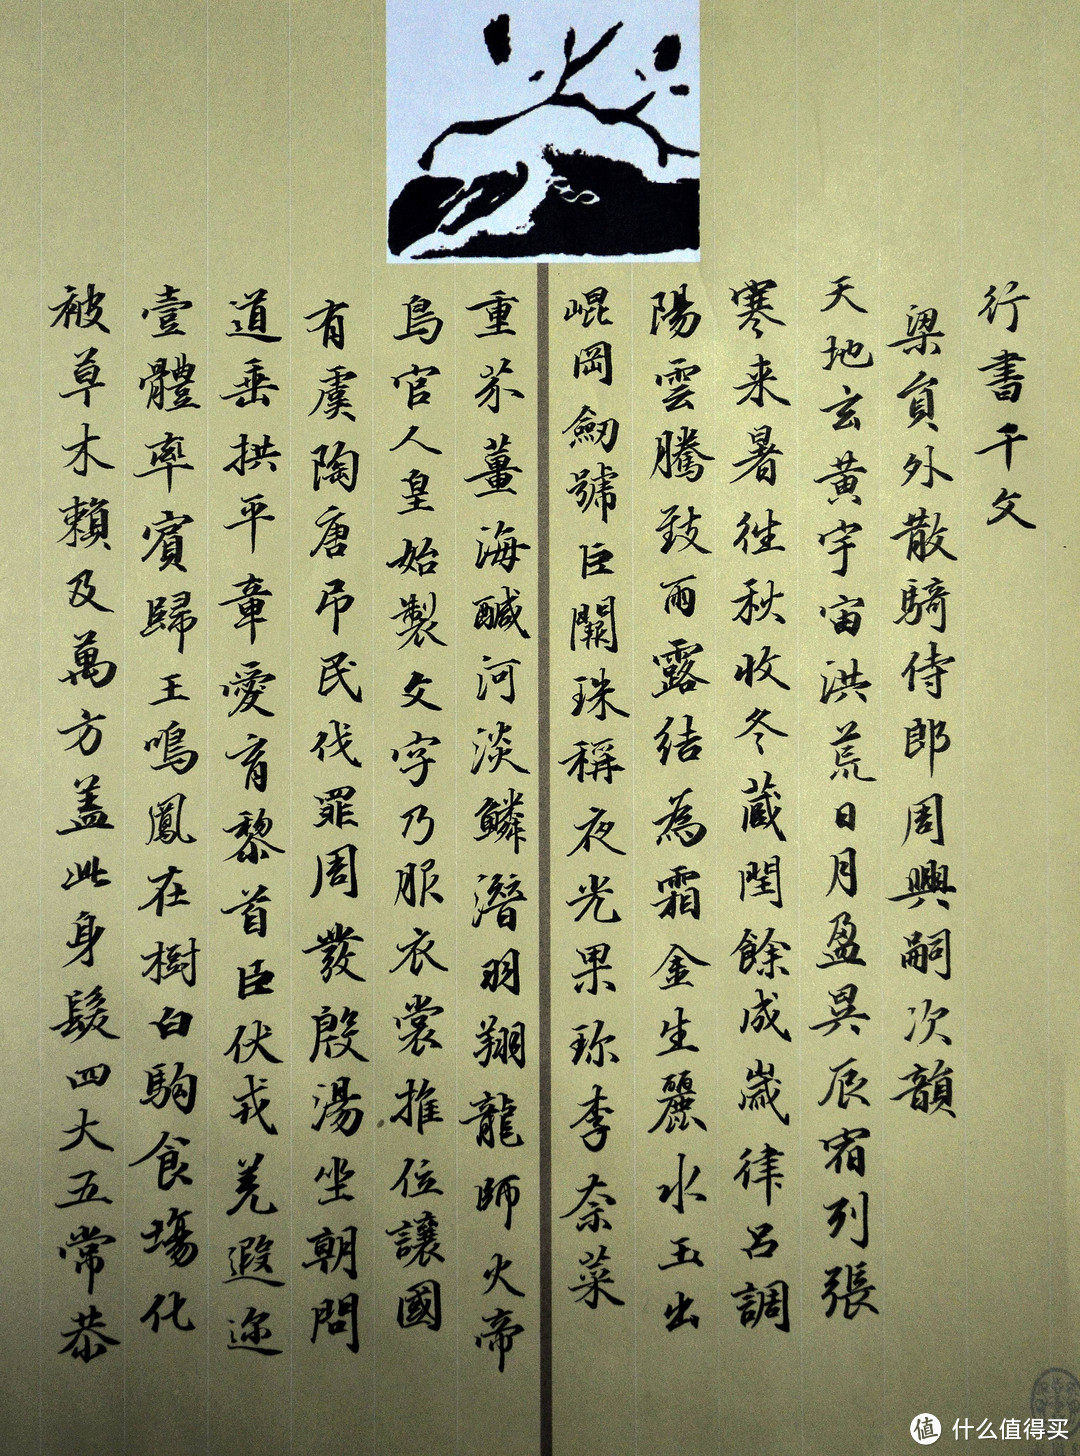 行書千文
梁員外散騎侍郎周興嗣次韻
天地玄黃宇宙洪荒日月盈昃辰宿列張
寒来暑徃秋收冬蔵閏餘成嵗律呂調
陽雲騰致雨露結為霜金生麗水玉出
崐岡劒號巨闕珠稱夜光果珎李柰菜
重芥薑海醎河淡鱗潛羽翔龍師火帝
鳥官人皇始製文字乃服衣裳推位讓國
有虞陶唐吊民伐罪周發殷湯坐朝問
道垂拱平章愛育黎首臣伏戎羌遐迩
壹體率賓歸王鳴鳳在樹白駒食場化
被草木賴及萬方盖此身髮四大五常恭
值 什么值得买